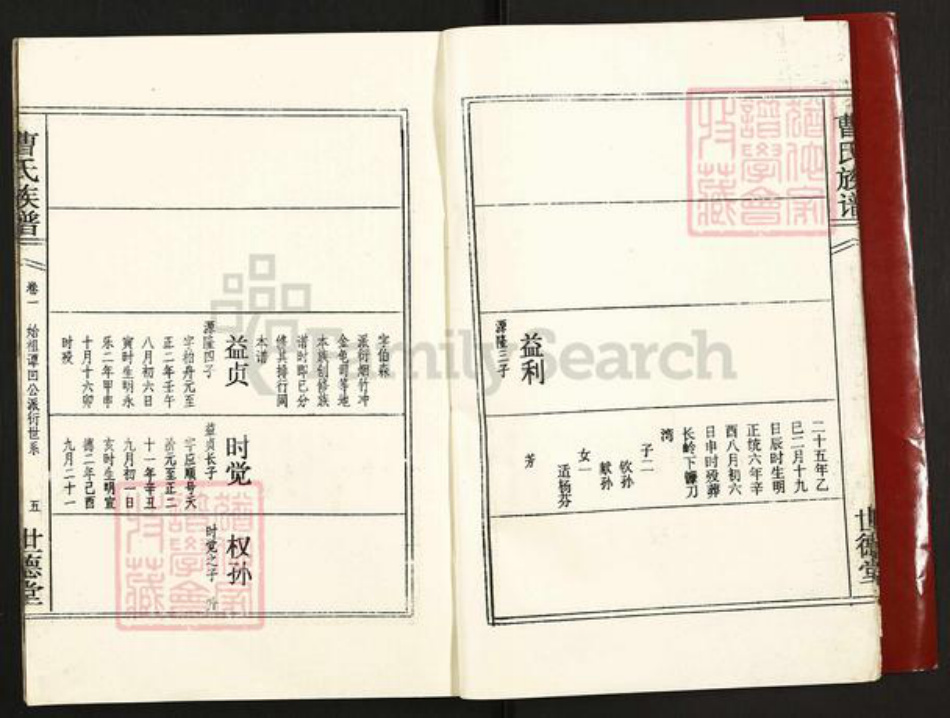 曹氏族谱
世德堂
二十五年乙
巳二月十九
日辰时生明
正统六年辛
酉八月初六
日申时殁葬
长岭下镰刀
湾
子二
钦孙
献孙
女一
适杨芬
芳
益利
源隆三子
字伯森
派衍烟竹冲
金龟司等地
本族创修族
谱时即已分
修其排行同
本谱
益贞
源隆四子
字柏舟元至
正二年壬午
八月初六日
寅时生明永
乐二年甲申
十月十六卯
时殁
时觉
益贞长子
字应顺号天
元至正二
十一年辛丑
九月初一日
亥时生明宣
德二年己酉
九月二十一
权孙
时觉之子
曹氏族谱
卷一 始祖谭回公派衍世系 五
世德堂
FamilySearch
谱学会
收藏